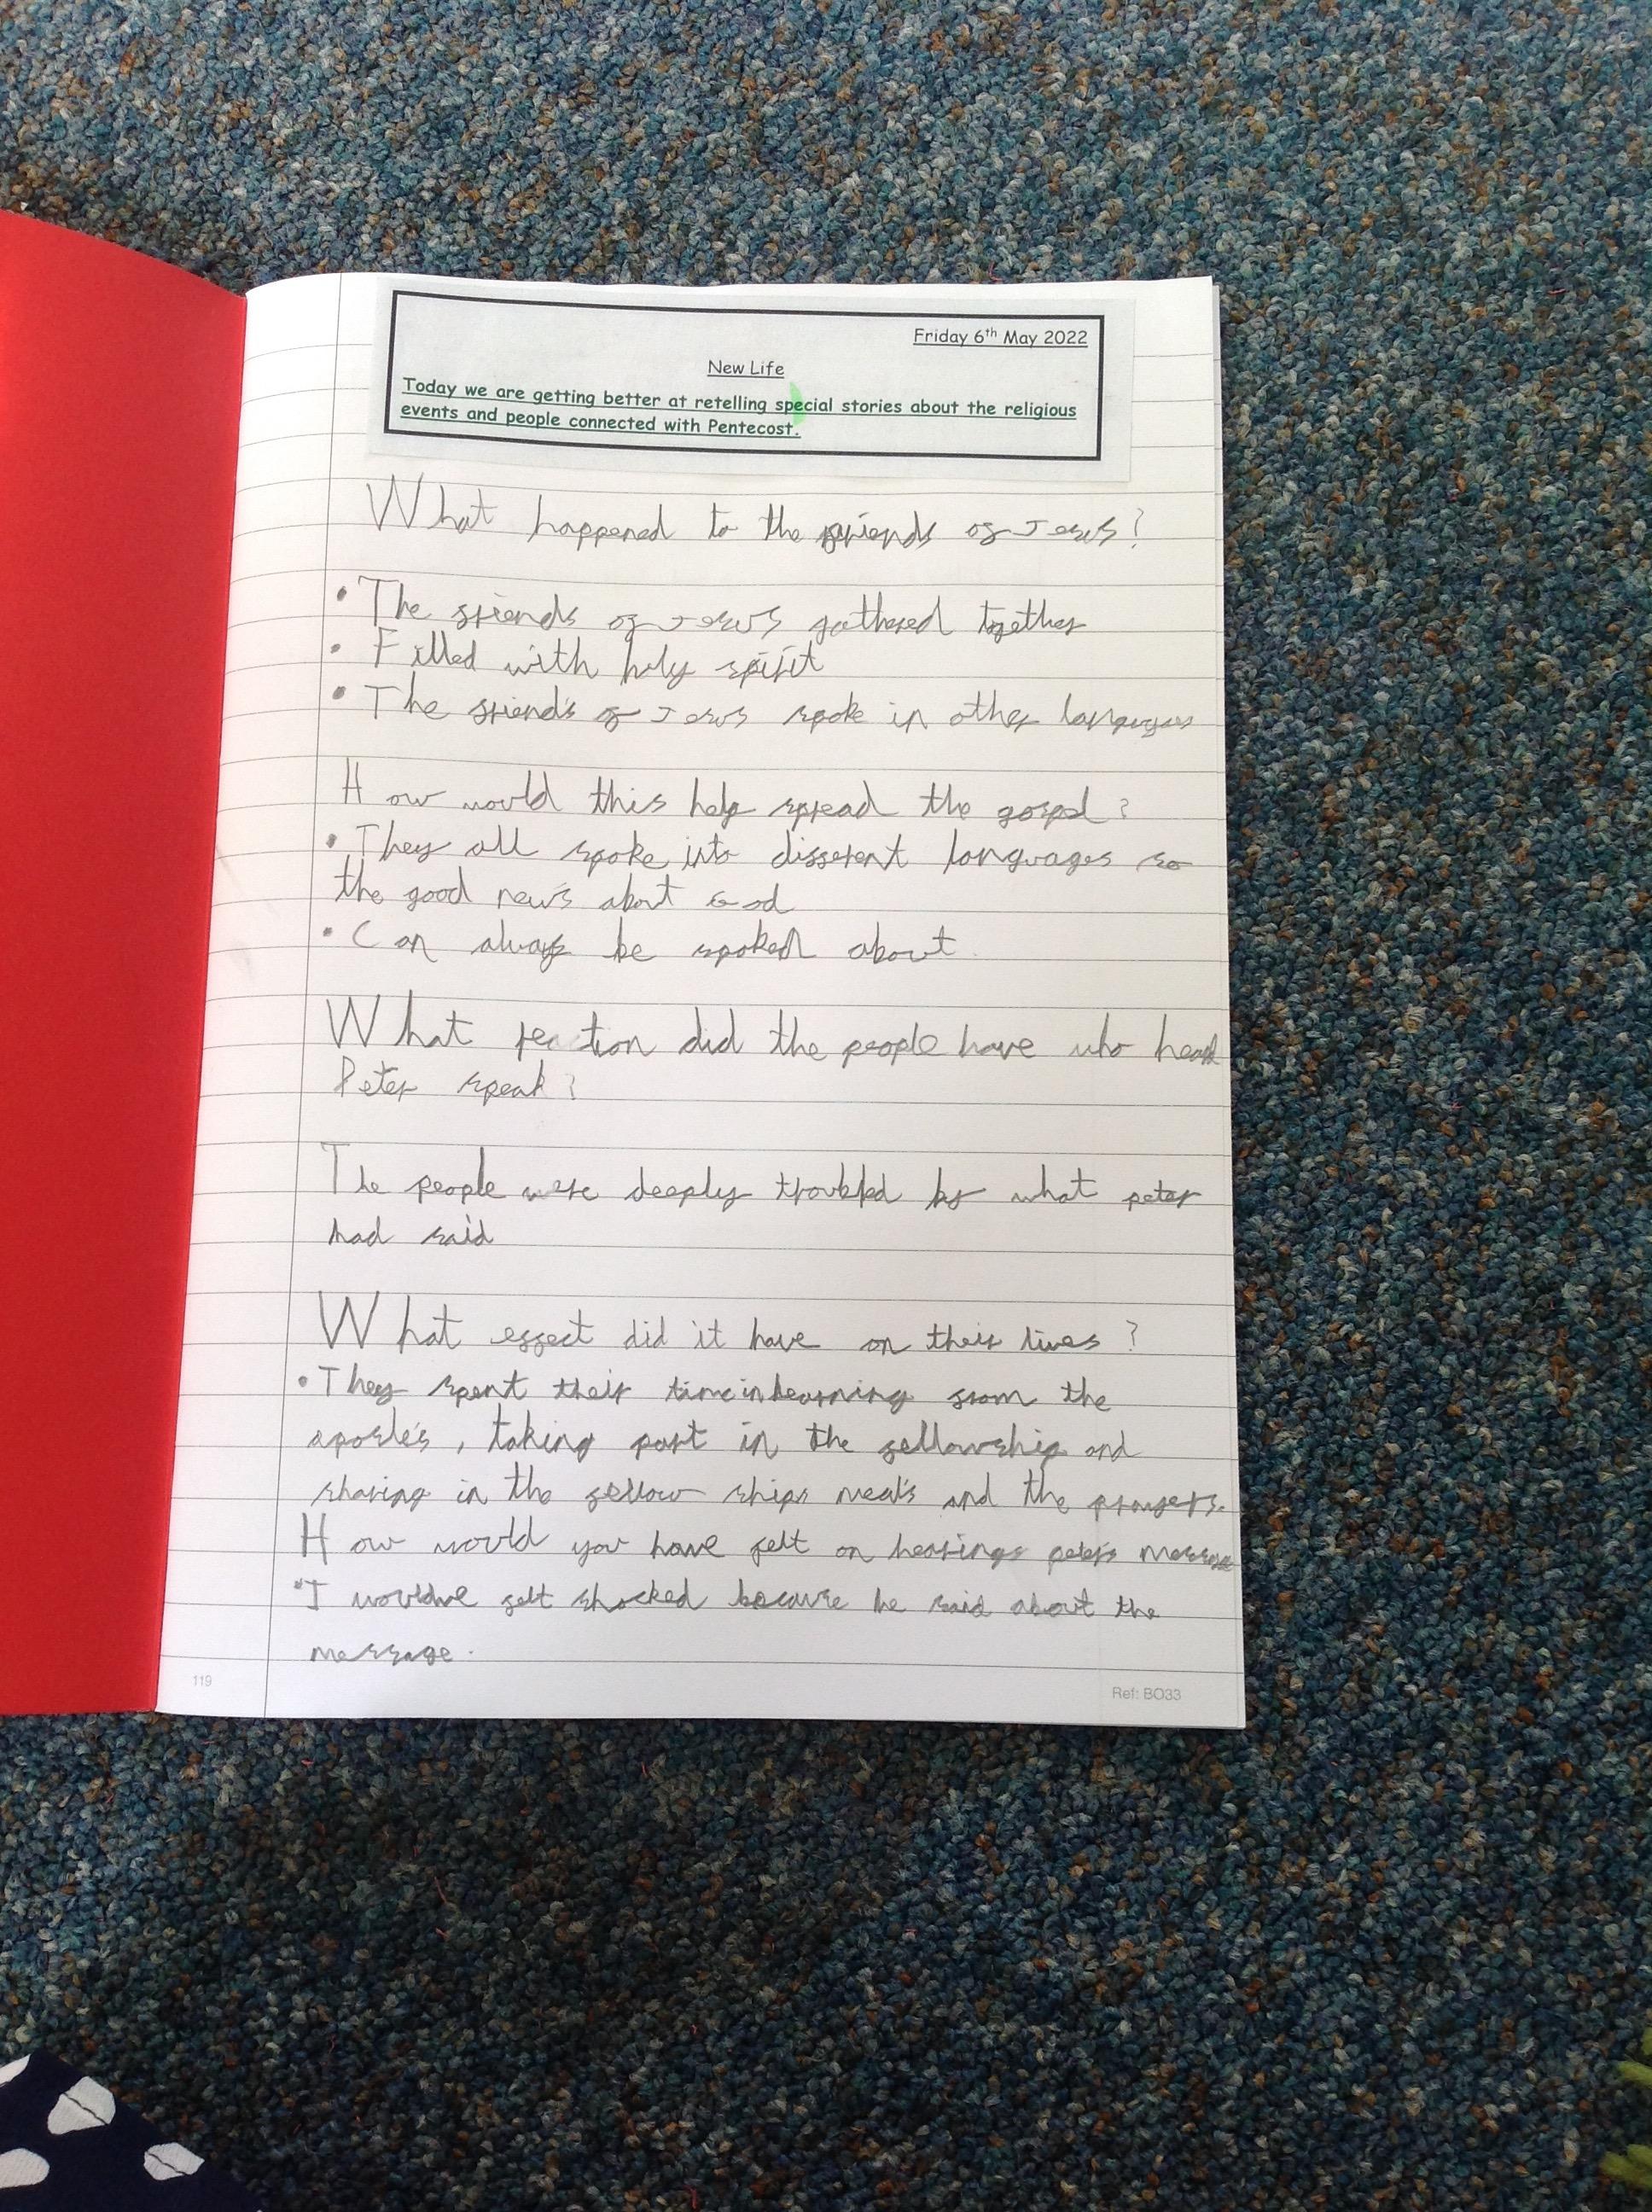 Friday 6th May 2022
New Life
Today we are getting better at retelling special stories about the religious
events and people connected with Pentecost.
What happened to the friends of Jesus?
• The friends of Jesus gathered together
• Filled with holy spirit
• The friends of Jesus spoke in other languages
How would this help spread the gospel?
• They all spoke into different languages so
the good news about God
• Can always be spoken about
What reaction did the people have who heard
Peter speak?
The people were deeply troubled by what peter
had said
What effect did it have on their lives?
• They spent their time in learning from the
aposles, taking part in the fellowship and
sharing in the fellow ships meals and the prayers.
How would you have felt on hearings peters message
• I wouldve felt shocked because he said about the
message.
119
Ref: BO33